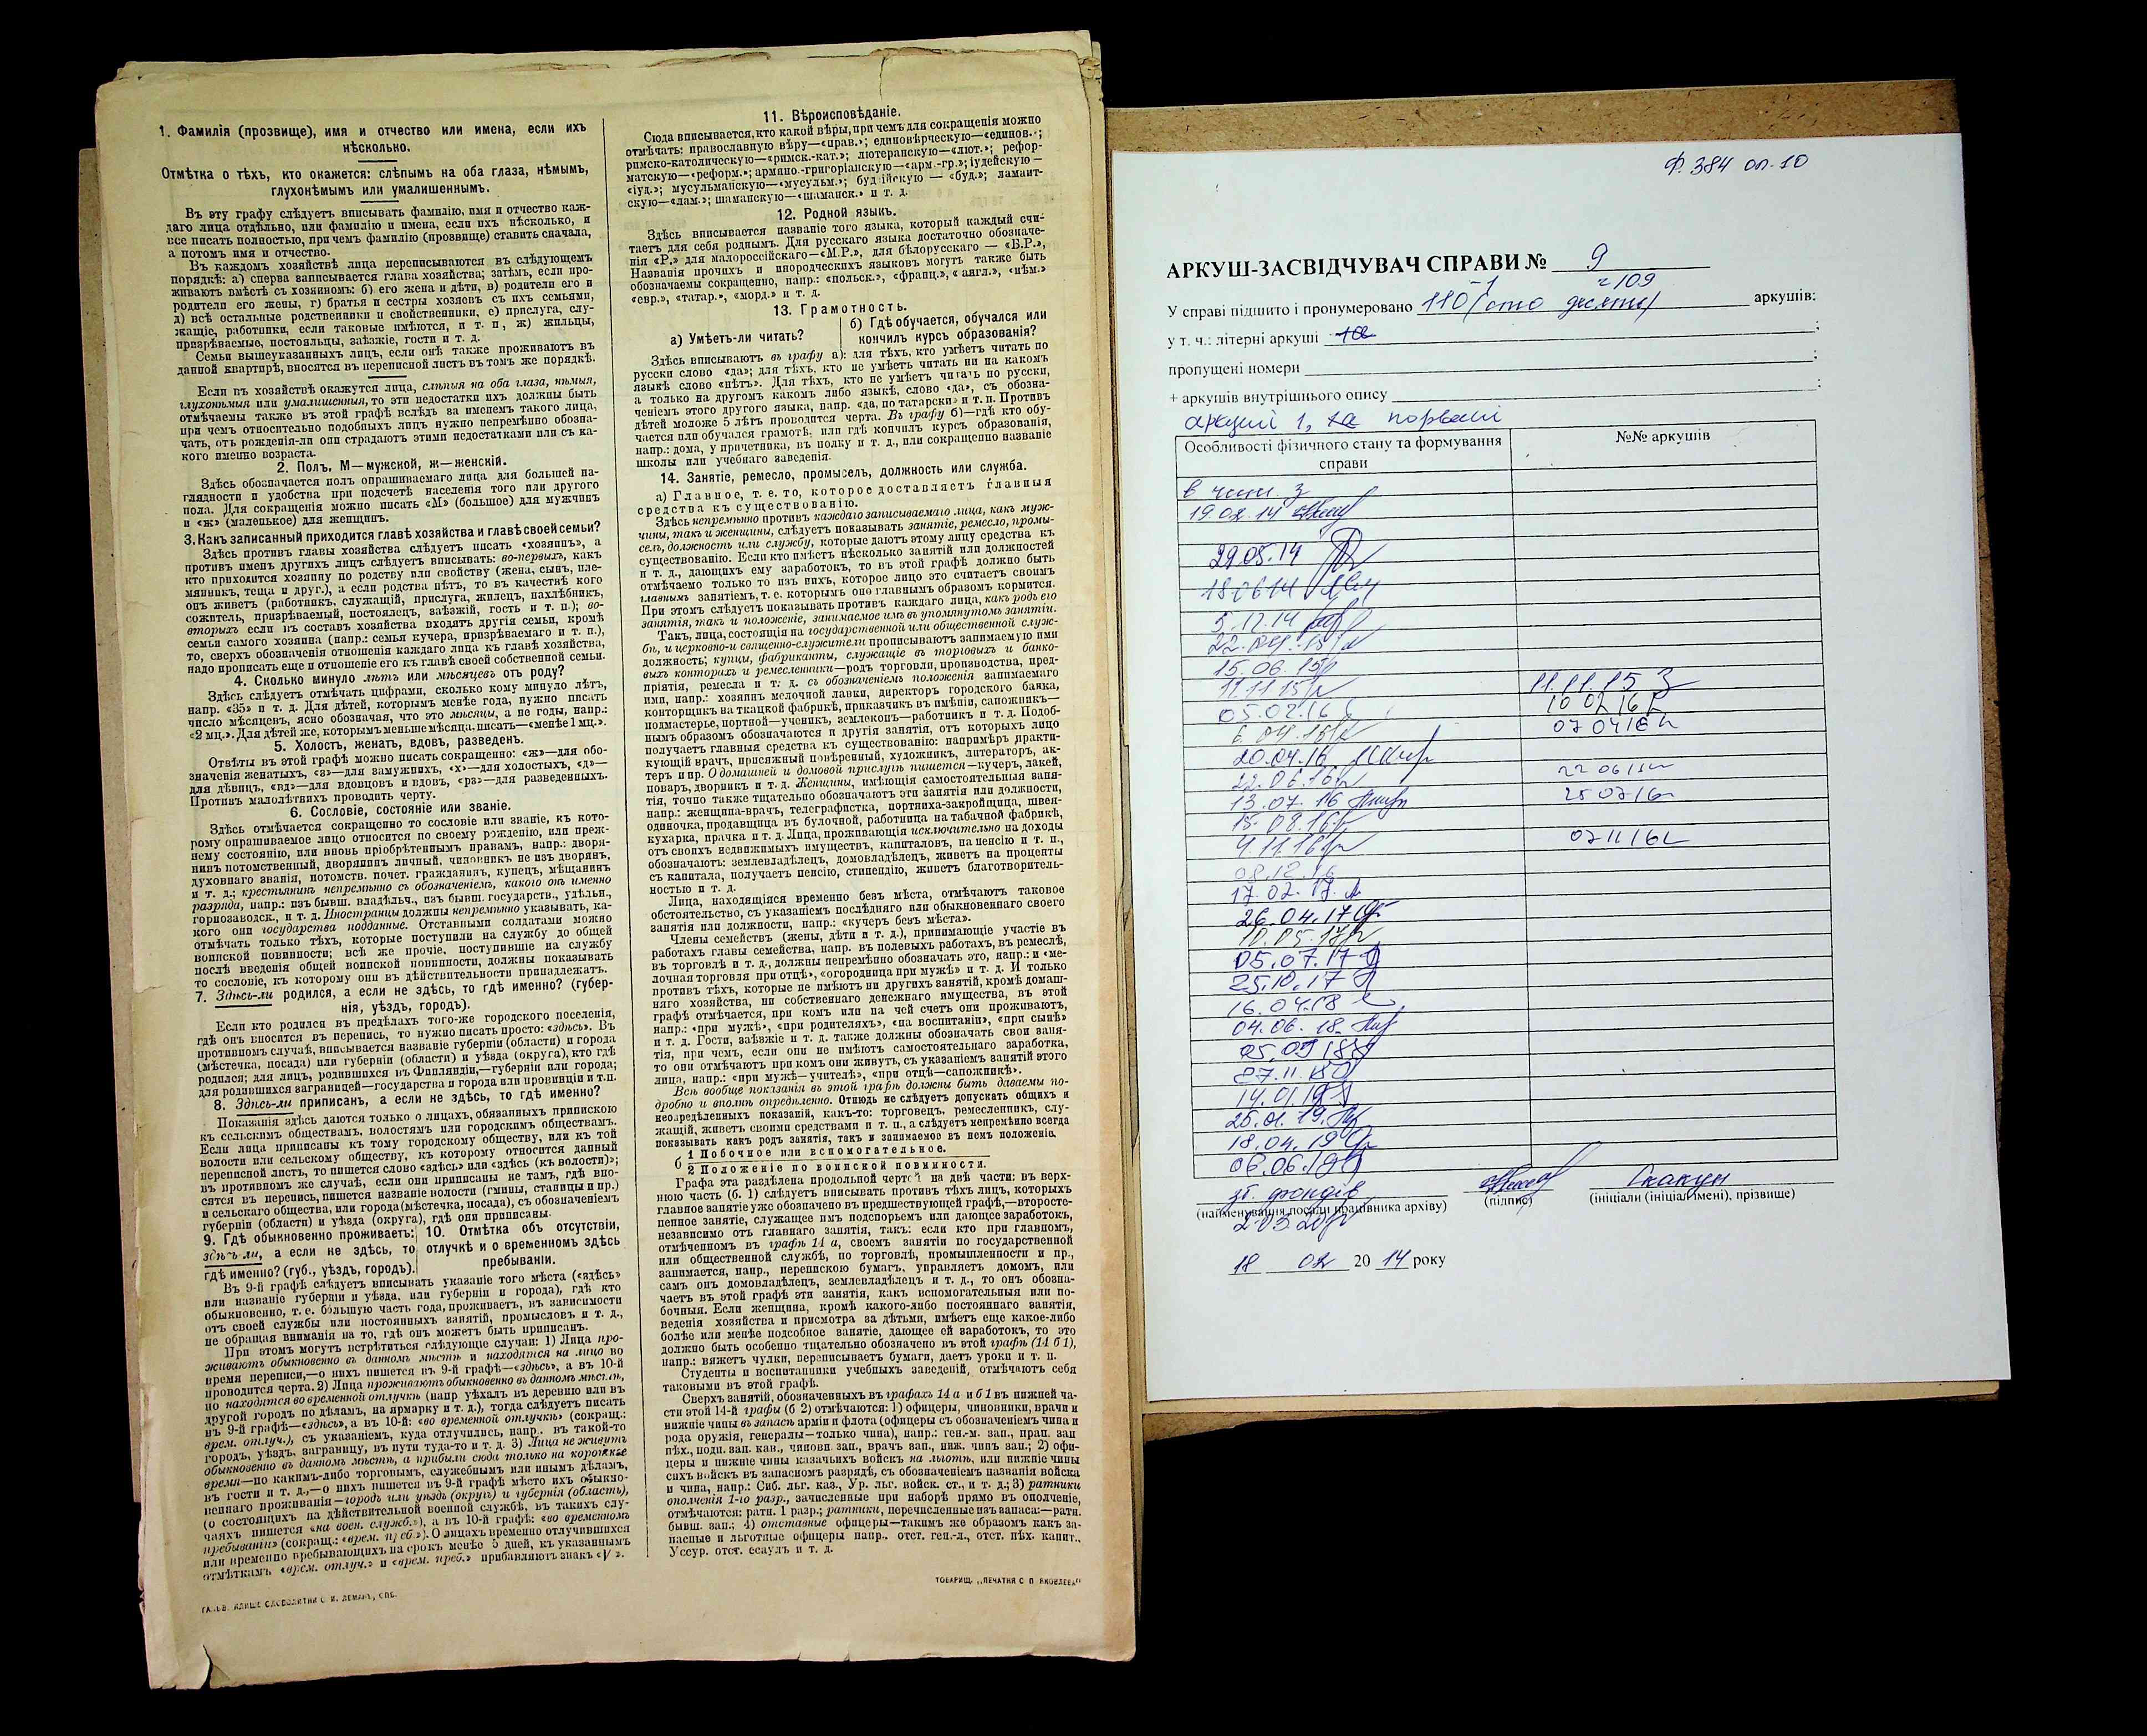 1. Фамилія (прозвище), имя и отчество или имена, если ихъ
нѣсколько.
Отмѣтка о тѣхъ, кто окажется: слѣпымъ на оба глаза, нѣмымъ,
глухонѣмымъ или умалишеннымъ.
Въ эту графу слѣдуетъ вписывать фамилію, имя и отчество каж-
даго лица отдѣльно, или фамилію и имена, если ихъ нѣсколько, и
все писать полностью, при чемъ фамилію (прозвище) ставить сначала,
а потомъ имя и отчество.
Въ каждомъ хозяйствѣ лица переписываются въ слѣдующемъ
порядкѣ: а) сперва записывается глава хозяйства; затѣмъ, если про-
живаютъ вмѣстѣ съ хозяиномъ: б) его жена и дѣти, в) родители его и
родители его жены, г) братья и сестры хозяевъ съ ихъ семьями,
д) всѣ остальные родственники и свойственники, е) прислуга, слу-
жащіе, работники, если таковые имѣются, и т. п, ж) жильцы,
призрѣваемые, постояльцы, заѣзжіе, гости и т. д.
Семьи вышеуказанныхъ лицъ, если онѣ также проживаютъ въ
данной квартирѣ, вносятся въ переписной листъ въ томъ же порядкѣ.
Если въ хозяйствѣ окажутся лица, слѣпыя на оба глаза, нѣмыя,
глухонѣмыя или умалишенныя, то эти недостатки ихъ должны быть
отмѣчаемы также въ этой графѣ вслѣдъ за именемъ такого лица,
при чемъ относительно подобныхъ лицъ нужно непремѣнно обозна-
чать, отъ рожденія-ли они страдаютъ этими недостатками или съ ка-
кого именно возраста.
2. Полъ, М—мужской, ж—женскій.
Здѣсь обозначается полъ опрашиваемаго лица для большей на-
глядности и удобства при подсчетѣ населенія того или другого
пола. Для сокращенія можно писать «М» (большое) для мужчинъ
и «ж» (маленькое) для женщинъ.
3. Какъ записанный приходится главѣ хозяйства и главѣ своей семьи?
Здѣсь противъ главы хозяйства слѣдуетъ писать «хозяинъ», а
противъ именъ другихъ лицъ слѣдуетъ вписывать: во-первыхъ, какъ
кто приходится хозяину по родству или свойству (жена, сынъ, пле-
мянникъ, теща и друг.), а если родства нѣтъ, то въ качествѣ кого
онъ живетъ (работникъ, служащій, прислуга, жилецъ, нахлѣбникъ,
сожитель, призрѣваемый, постоялецъ, заѣзжій, гость и т. п.); во-
вторыхъ если въ составъ хозяйства входятъ другія семьи, кромѣ
семьи самого хозяина (напр.: семья кучера, призрѣваемаго и т. п.),
то, сверхъ обозначенія отношенія каждаго лица къ главѣ хозяйства,
надо прописать еще и отношеніе его къ главѣ своей собственной семьи.
4. Сколько минуло лѣтъ или мѣсяцевъ отъ роду?
Здѣсь слѣдуетъ отмѣчать цифрами, сколько кому минуло лѣтъ,
напр. «35» и т. д. Для дѣтей, которымъ менѣе года, нужно писать
число мѣсяцевъ, ясно обозначая, что это мѣсяцы, а не годы, напр.:
«2 мц.». Для дѣтей же, которымъ меньше мѣсяца. писать—«менѣе 1 мц.».
5. Холостъ, женатъ, вдовъ, разведенъ.
Отвѣты въ этой графѣ можно писать сокращенно: «ж»—для обо-
значенія женатыхъ, «з»—для замужнихъ, «х»—для холостыхъ, «д»—
для дѣвицъ, «вд»—для вдовцовъ и вдовъ, «рз»—для разведенныхъ.
Противъ малолѣтнихъ проводить черту.
6. Сословіе, состояніе или званіе.
Здѣсь отмѣчается сокращенно то сословіе или званіе, къ кото-
рому опрашиваемое лицо относится по своему рожденію, или преж-
нему состоянію, или вновь пріобрѣтеннымъ правамъ, напр.: дворя-
нинъ потомственный, дворянинъ личный, чиновникъ не изъ дворянъ,
духовнаго званія, потомств. почет. гражданинъ, купецъ, мѣщанинъ
и т. д.; крестьянинъ непремѣнно съ обозначеніемъ, какого онъ именно
разряда, напр.: изъ бывш. владѣльч., изъ бывш. государств., удѣльн.,
горнозаводск., и т. д. Иностранцы должны непремѣнно указывать, ка-
кого они государства подданные. Отставными солдатами можно
отмѣчать только тѣхъ, которые поступили на службу до общей
воинской повинности; всѣ же прочіе, поступившіе на службу
послѣ введенія общей воинской повинности, должны показывать
то сословіе, къ которому они въ дѣйствительности принадлежатъ.
7. Здѣсь-ли родился, а если не здѣсь, то гдѣ именно? (губер-
нія, уѣздъ, городъ).
Если кто родился въ предѣлахъ того-же городского поселенія,
гдѣ онъ вносится въ перепись, то нужно писать просто: «здѣсь». Въ
противномъ случаѣ, вписывается названіе губерніи (области) и города
(мѣстечка, посада) или губерніи (области) и уѣзда (округа), кто гдѣ
родился; для лицъ, родившихся въ Финляндіи,—губерніи или города;
для родившихся заграницей—государства и города или провинціи и т.п.
8. Здѣсь-ли приписанъ, а если не здѣсь, то гдѣ именно?
Показанія здѣсь даются только о лицахъ, обязанныхъ припискою
къ сельскимъ обществамъ, волостямъ или городскимъ обществамъ.
Если лица приписаны къ тому городскому обществу, или къ той
волости или сельскому обществу, къ которому относится данный
переписной листъ, то пишется слово «здѣсь» или «здѣсь (къ волости)»;
въ противномъ же случаѣ, если они приписаны не тамъ, гдѣ вно-
сятся въ перепись, пишется названіе волости (гмины, станицы и пр.)
и сельскаго общества, или города (мѣстечка, посада), съ обозначеніемъ
губерніи (области) и уѣзда (округа), гдѣ они приписаны.
9. Гдѣ обыкновенно проживаетъ:
здѣсь-ли, а если не здѣсь, то
гдѣ именно? (губ., уѣздъ, городъ).
10. Отмѣтка объ отсутствіи,
отлучкѣ и о временномъ здѣсь
пребываніи.
Въ 9-й графѣ слѣдуетъ вписывать указаніе того мѣста («здѣсь»
или названіе губерніи и уѣзда, или губерніи и города), гдѣ кто
обыкновенно, т. е. большую часть года, проживаетъ, въ зависимости
отъ своей службы или постоянныхъ занятій, промысловъ и т. д.,
не обращая вниманія на то, гдѣ онъ можетъ быть приписанъ.
При этомъ могутъ встрѣтиться слѣдующіе случаи: 1) Лица про-
живаютъ обыкновенно въ данномъ мѣстѣ и находятся на лицо во
время переписи,—о нихъ пишется въ 9-й графѣ—«здѣсь», а въ 10-й
проводится черта. 2) Лица проживаютъ обыкновенно въ данномъ мѣстѣ,
но находятся во временной отлучкѣ (напр уѣхалъ въ деревню или въ
другой городъ по дѣламъ, на ярмарку и т. д.), тогда слѣдуетъ писать
въ 9-й графѣ—«здѣсь», а въ 10-й: «во временной отлучкѣ» (сокращ.:
врем. отлуч.), съ указаніемъ, куда отлучились, напр. въ такой-то
городъ, уѣздъ, заграницу, въ пути туда-то и т. д. 3) Лица не живутъ
обыкновенно въ данномъ мѣстѣ, а прибыли сюда только на короткое
время—по какимъ-либо торговымъ, служебнымъ или инымъ дѣламъ,
въ гости и т. д.,—о нихъ пишется въ 9-й графѣ мѣсто ихъ обыкно-
веннаго проживанія—городъ или уѣздъ (округъ) и губернія (область),
(о состоящихъ на дѣйствительной военной службѣ, въ такихъ слу-
чаяхъ пишется «на воен. служб.»), а въ 10-й графѣ: «во временномъ
пребываніи» (сокращ.: «врем. преб.»). О лицахъ временно отлучившихся
или временно пребывающихъ на срокъ менѣе 5 дней, къ указаннымъ
отмѣткамъ «врем. отлуч.» и «врем. преб.» прибавляютъ знакъ «V».
11. Вѣроисповѣданіе.
Сюда вписывается, кто какой вѣры, при чемъ для сокращенія можно
отмѣчать: православную вѣру—«прав.»; единовѣрческую—«единов.»;
римско-католическую—«римск.-кат.»; лютеранскую—«лют.»; рефор-
матскую—«реформ.»; армяно-григоріанскую—«арм-гр.»; іудейскую—
«іуд.»; мусульманскую—«мусульм.»; буддійскую—«буд.»; ламаит-
скую—«лам.»; шаманскую—«шаманск.» и т. д.
12. Родной языкъ.
Здѣсь вписывается названіе того языка, который каждый счи-
таетъ для себя роднымъ. Для русскаго языка достаточно обозначе-
нія «Р.» для малороссійскаго—«М.Р.», для бѣлорусскаго — «Б.Р.»,
Названія прочихъ и инородческихъ языковъ могутъ также быть
обозначаемы сокращенно, напр.: «польск.», «франц.», «англ.», «нѣм.»
«евр.», «татар.», «морд.» и т. д.
13. Грамотность.
а) Умѣетъ-ли читать?
б) Гдѣ обучается, обучался или
кончилъ курсъ образованія?
Здѣсь вписываютъ въ графу а): для тѣхъ, кто умѣетъ читать по
русски слово «да»; для тѣхъ, кто не умѣетъ читать ни на какомъ
языкѣ слово «нѣтъ». Для тѣхъ, кто не умѣетъ читать по русски,
а только на другомъ какомъ либо языкѣ, слово «да», съ обозна-
ченіемъ этого другого языка, напр. «да, по татарски» и т. п. Противъ
дѣтей моложе 5 лѣтъ проводится черта. Въ графу б)—гдѣ кто обу-
чается или обучался грамотѣ, или гдѣ кончилъ курсъ образованія,
напр.: дома, у причетника, въ полку и т. д., или сокращенно названіе
школы или учебнаго заведенія.
14. Занятіе, ремесло, промыселъ, должность или служба.
а) Главное, т. е. то, которое доставляетъ главныя
средства къ существованію.
Здѣсь непремѣнно противъ каждаго записываемаго лица, какъ муж-
чины, такъ и женщины, слѣдуетъ показывать занятіе, ремесло, промы-
селъ, должность или службу, которые даютъ этому лицу средства къ
существованію. Если кто имѣетъ нѣсколько занятій или должностей
и т. д., дающихъ ему заработокъ, то въ этой графѣ должно быть
отмѣчаемо только то изъ нихъ, которое лицо это считаетъ своимъ
главнымъ занятіемъ, т. е. которымъ оно главнымъ образомъ кормится.
При этомъ слѣдуетъ показывать противъ каждаго лица, какъ родъ его
занятія, такъ и положеніе, занимаемое имъ въ упомянутомъ занятіи.
Такъ, лица, состоящія на государственной или общественной служ-
бѣ, и церковно-и священно-служители прописываютъ занимаемую ими
должность; купцы, фабриканты, служащіе въ торговыхъ и банко-
выхъ конторахъ и ремесленники—родъ торговли, производства, пред-
пріятія, ремесла и т. д. съ обозначеніемъ положенія занимаемаго
ими, напр.: хозяинъ мелочной лавки, директоръ городского банка,
конторщикъ на ткацкой фабрикѣ, приказчикъ въ имѣніи, сапожникъ—
подмастерье, портной—ученикъ, землекопъ—работникъ и т. д. Подоб-
нымъ образомъ обозначаются и другія занятія, отъ которыхъ лицо
получаетъ главныя средства къ существованію: напримѣръ практи-
кующій врачъ, присяжный повѣренный, художникъ, литераторъ, ак-
теръ и пр. О домашней и домовой прислугѣ пишется—кучеръ, лакей,
поваръ, дворникъ и т. д. Женщины, имѣющія самостоятельныя заня-
тія, точно также тщательно обозначаютъ эти занятія или должности,
напр.: женщина-врачъ, телеграфистка, портниха-закройщица, швея-
одиночка, продавщица въ булочной, работница на табачной фабрикѣ,
кухарка, прачка и т. д. Лица, проживающія исключительно на доходы
отъ своихъ недвижимыхъ имуществъ, капиталовъ, на пенсію и т. п.,
обозначаютъ: землевладѣлецъ, домовладѣлецъ, живетъ на проценты
съ капитала, получаетъ пенсію, стипендію, живетъ благотворитель-
ностью и т. д.
Лица, находящіяся временно безъ мѣста, отмѣчаютъ таковое
обстоятельство, съ указаніемъ послѣдняго или обыкновеннаго своего
занятія или должности, напр.: «кучеръ безъ мѣста».
Члены семействъ (жены, дѣти и т. д.), принимающіе участіе въ
работахъ главы семейства, напр. въ полевыхъ работахъ, въ ремеслѣ,
въ торговлѣ и т. д., должны непремѣнно обозначать это, напр.: «ме-
лочная торговля при отцѣ», «огородница при мужѣ» и т. д. И только
противъ тѣхъ, которые не имѣютъ ни другихъ занятій, кромѣ домаш-
няго хозяйства, ни собственнаго денежнаго имущества, въ этой
графѣ отмѣчается, при комъ или на чей счетъ они проживаютъ,
напр.: «при мужѣ», «при родителяхъ», «на воспитаніи», «при сынѣ»
и т. д. Гости, заѣзжіе и т. д. также должны обозначать свои заня-
тія, при чемъ, если они не имѣютъ самостоятельнаго заработка,
то они отмѣчаютъ при комъ они живутъ, съ указаніемъ занятій этого
лица, напр.: «при мужѣ—учителѣ», «при отцѣ—сапожникѣ».
Всѣ вообще показанія въ этой графѣ должны быть даваемы по-
дробно и вполнѣ опредѣленно. Отнюдь не слѣдуетъ допускать общихъ и
неопредѣленныхъ показаній, какъ-то: торговецъ, ремесленникъ, слу-
жащій, живетъ своими средствами и т. п., а слѣдуетъ непремѣнно всегда
показывать какъ родъ занятія, такъ и занимаемое въ немъ положеніе.
б
1 Побочное или вспомогательное.
2 Положеніе по воинской повинности.
Графа эта раздѣлена продольной чертой на двѣ части: въ верх-
нюю часть (б. 1) слѣдуетъ вписывать противъ тѣхъ лицъ, которыхъ
главное занятіе уже обозначено въ предшествующей графѣ,—второсте-
пенное занятіе, служащее имъ подспорьемъ или дающее заработокъ,
независимо отъ главнаго занятія, такъ: если кто при главномъ,
отмѣченномъ въ графѣ 14 а, своемъ занятіи по государственной
или общественной службѣ, по торговлѣ, промышленности и пр.,
занимается, напр., перепискою бумагъ, управляетъ домомъ, или
самъ онъ домовладѣлецъ, землевладѣлецъ и т. д., то онъ обозна-
чаетъ въ этой графѣ эти занятія, какъ вспомогательныя или по-
бочныя. Если женщина, кромѣ какого-либо постояннаго занятія,
веденія хозяйства и присмотра за дѣтьми, имѣетъ еще какое-либо
болѣе или менѣе подсобное занятіе, дающее ей заработокъ, то это
должно быть особенно тщательно обозначено въ этой графѣ (14 б 1),
напр.: вяжетъ чулки, переписываетъ бумаги, даетъ уроки и т. п.
Студенты и воспитанники учебныхъ заведеній, отмѣчаютъ себя
таковыми въ этой графѣ.
Сверхъ занятій, обозначенныхъ въ графахъ 14 а и б 1 въ нижней ча-
сти этой 14-й графы (б 2) отмѣчаются: 1) офицеры, чиновники, врачи и
нижніе чины въ запасѣ арміи и флота (офицеры съ обозначеніемъ чина и
рода оружія, генералы—только чина), напр.: ген.-м. зап., прап. зап
пѣх., подп. зап. кав., чиновн. зап., врачъ зап., ниж. чинъ зап.; 2) офи-
церы и нижніе чины казачьихъ войскъ на льготѣ, или нижніе чины
сихъ войскъ въ запасномъ разрядѣ, съ обозначеніемъ названія войска
и чина, напр.: Сиб. льг. каз., Ур. льг. войск. ст., и т. д.; 3) ратники
ополченія 1-го разр., зачисленные при наборѣ прямо въ ополченіе,
отмѣчаются: ратн. 1 разр.; ратники, перечисленные изъ запаса:—ратн.
бывш. зап.; 4) отставные офицеры—такимъ же образомъ какъ за-
пасные и льготные офицеры напр.. отст. ген.-л., отст. пѣх. капит.,
Уссур. отст. есаулъ и т. д.
ТОВАРИЩ. „ПЕЧАТНЯ С П ЯКОВЛЕВА"
Ф. 384 оп. 10
АРКУШ-ЗАСВІДЧУВАЧ СПРАВИ № 9
-1 = 109
У справі підшито і пронумеровано 110 (сто десять) аркушів:
у т. ч.: літерні аркуші 1а ;
пропущені номери ;
+ аркушів внутрішнього опису ;
аркуші 1, 1а порвані
Особливості фізичного стану та формування
справи
№№ аркушів
в чит. з
19.02.14
29.05.14
18.06.14
5.12.14
22.04.15
15.06.15
11.11.15 11.11.15
05.02.16 10 02 16
6.04.16 07 04 16
20.04.16
22.06.16 22 06 16
13.07.16 25 07 16
15.08.16
4.11.16 07 11 16
08.12.16
17.02.17
26.04.17
10.05.17
05.07.17
25.10.17
16.04.18
04.06.18
05.09.18
27.11.18
14.01.19
25.01.19
18.04.19
06.06.19
зб. фондів Скакун
(найменування посади працівника архіву) (підпис) (ініціали (ініціал імені), прізвище)
2.03.20
18 02 20 14 року